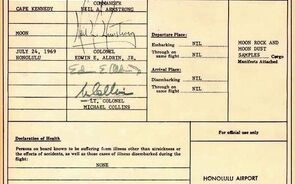 COMMANDER
CAPE KENNEDY
NEIL A. ARMSTRONG
Departure Place:
MOON
Embarking NIL
Through on same flight NIL
MOON ROCK AND MOON DUST SAMPLES Cargo Manifests Attached
JULY 24, 1969
HONOLULU
COLONEL
EDWIN E. ALDRIN, JR.
Arrival Place:
Disembarking NIL
Through on same flight NIL
LT. COLONEL
MICHAEL COLLINS
Declaration of Health
For official use only
Persons on board known to be suffering from illness other than airsickness or
the effects of accidents, as well as those cases of illness disembarked during the
flight:
NONE
HONOLULU AIRPORT